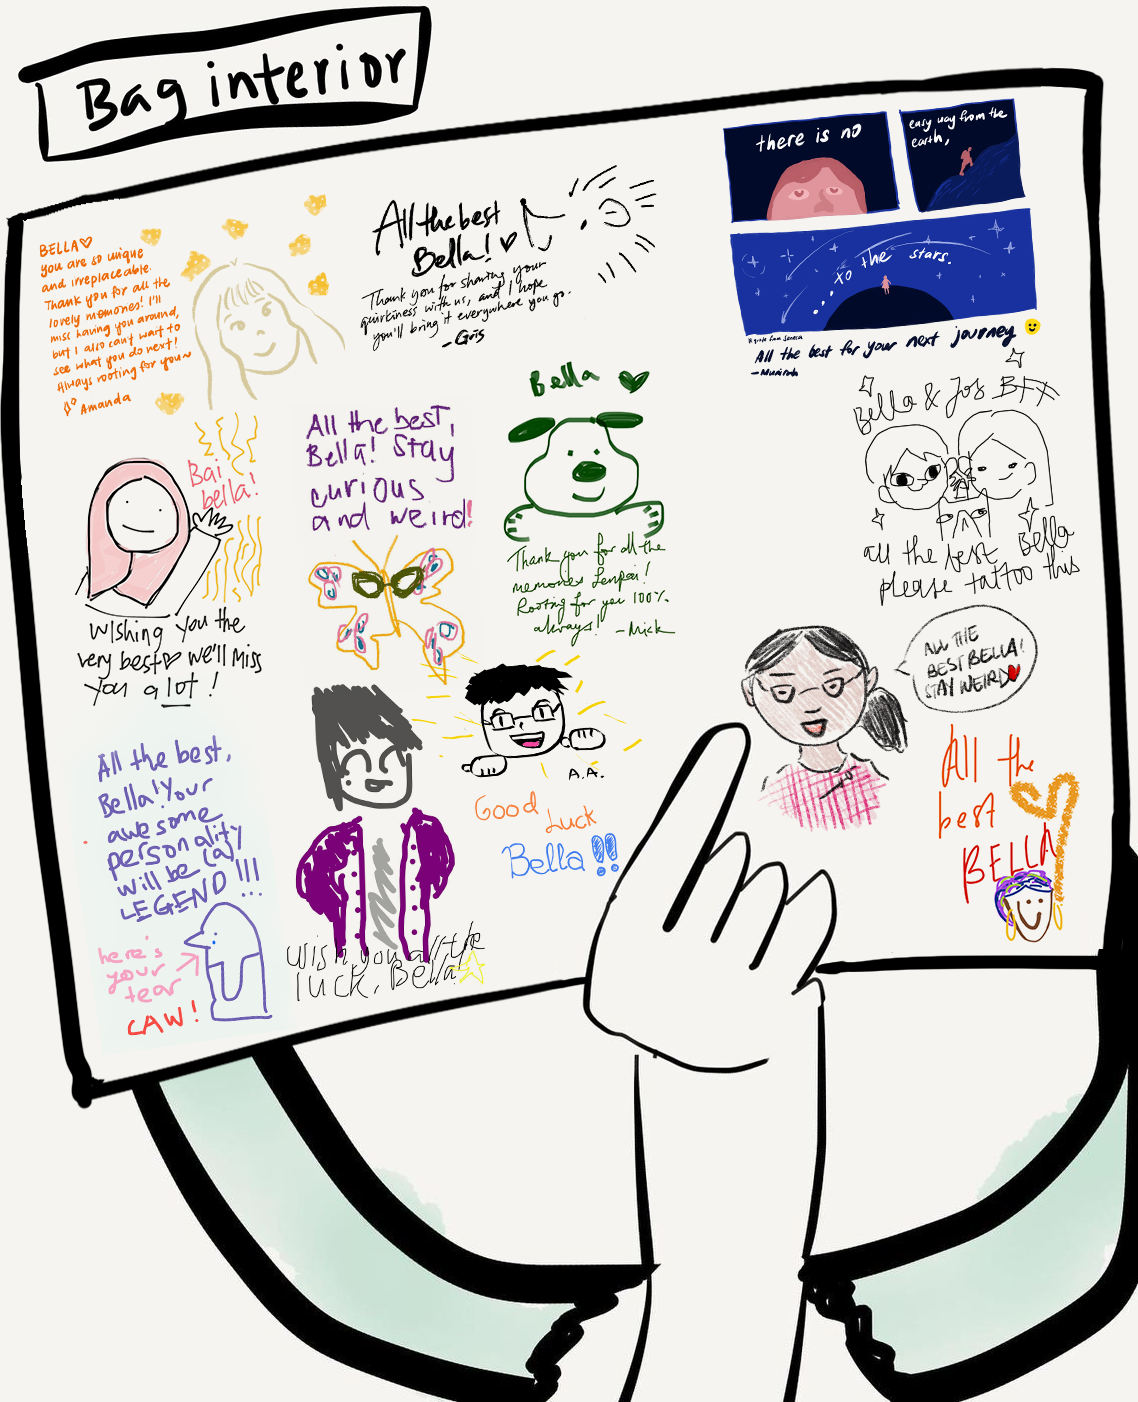 Bag interior
BELLA♡
you are so unique
and irreplaceable.
Thank you for all the
lovely memories! I'll
miss having you around,
but I also can't wait to
see what you do next!
Always rooting for you~
Amanda
All the best
Bella! ♡
Thank you for sharing your
quirkiness with us, and I hope
you'll bring it everywhere you go.
there is no
easy way from the
earth,
to the stars.
*A quote from Seneca
All the best for your next journey
Bai
bella!
Wishing you the
very best♡ we'll miss
you a lot!
All the best,
Bella! Stay
curious
and weird!
Bella ♥
Thank you for all the
memories Senpai!
Rooting for you 100%
always! -Mick
Bella & Jos BFF
all the best Bella
please tattoo this
ALL THE
BEST BELLA!
STAY WEIRD♥
All the best,
Bella! Your
awesome
personality
will be (a)
LEGEND!!!
here's
your
tear
CAW!
Wish you all the
luck, Bella!
A.A.
Good
Luck
Bella!!
All the
best
BELLA